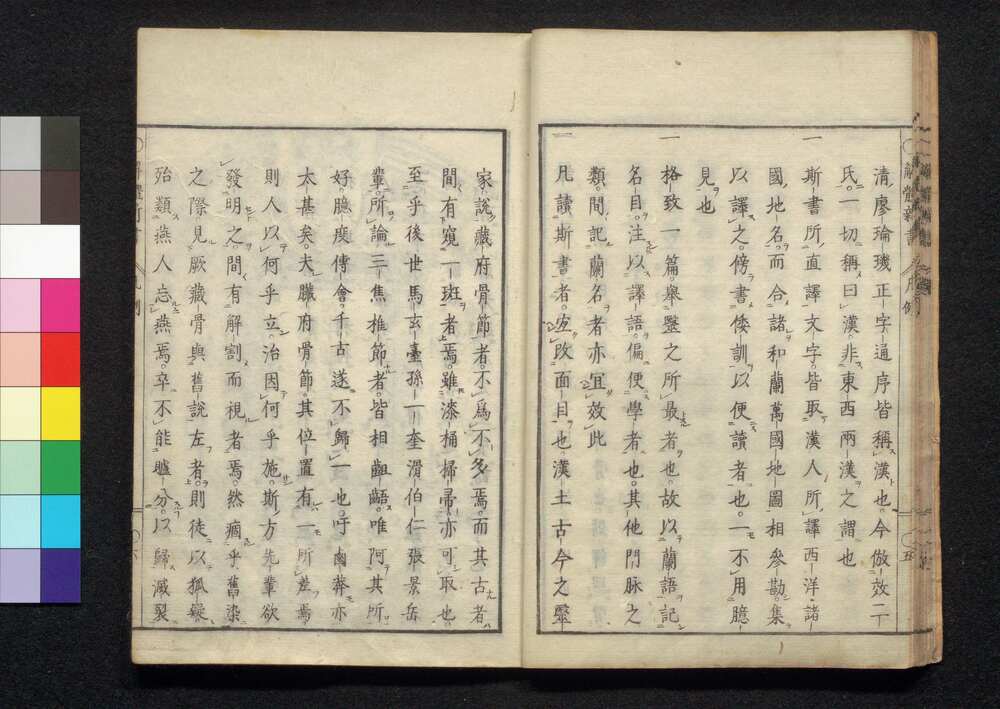 清廖瑜璣正字通序皆稱漢也。今倣效二
氏。一切稱曰漢。非東西兩漢之謂也
一斯書所直譯文字。皆取漢人所譯西洋諸
國地名。而合諸和蘭萬國地圖相參勘。集
以譯之。傍書倭訓。以便讀者也。一不用臆
見也
一格致一篇。舉毉之所最者也。故以蘭語記
名目。注以譯語。偏便學者也。其他門脉之
類。間記蘭名者。亦宜效此
一凡讀斯書者。宜改面目也。漢土古今之毉
家。說藏府骨節者。不爲不多焉。而其古者
間有窺一班者焉。雖漆桶掃帚。亦可取也
至乎後世馬玄臺孫一奎滑伯仁張景岳
輩。所論三焦椎節者。皆相齟齬。唯阿其所
好。臆度傅會。千古遂不歸一也。吁鹵莽亦
太甚矣。夫臟府骨節。其位置有一所差焉
則人以何乎立。治因何乎施。斯方先輩欲
發明之。間有解割而視者焉。然痼乎舊染
之際。見厥藏骨與舊說左者。則徒以狐疑
殆類燕人忘燕焉。卒不能臚分。以歸滅裂
解體新書
凡例
五
六